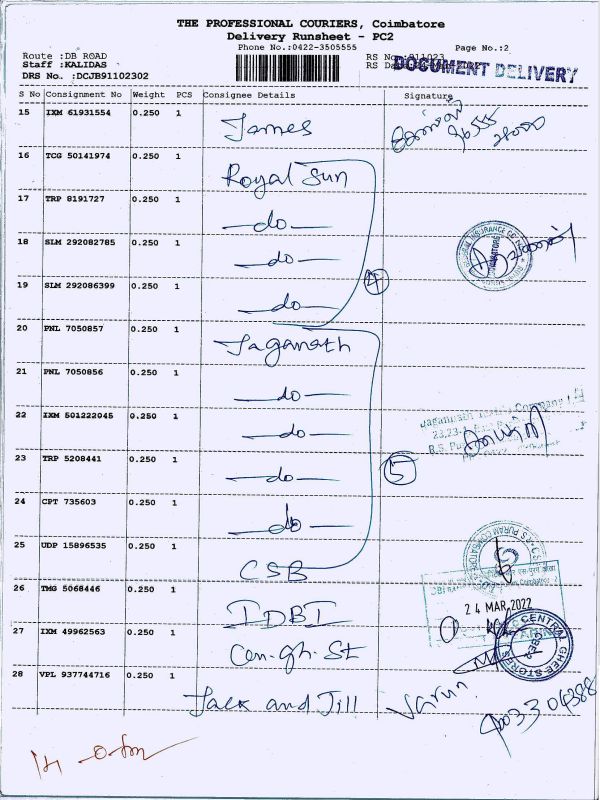 THE PROFESSIONAL COURIERS, Coimbatore
Delivery Runsheet - PC2
Phone No.:0422-3505555
Page No.:2
Route :DB ROAD
Staff :KALIDAS
DRS No. :DCJB91102302
DOCUMENT DELIVERY
S No Consignment No Weight PCS Consignee Details Signature
15 IXM 61931554 0.250 1 James
16 TCG 50141974 0.250 1 Royal Sun
17 TRP 8191727 0.250 1 —do—
18 SLM 292082785 0.250 1 —do—
19 SLM 292086399 0.250 1 —do—
4
20 PNL 7050857 0.250 1 Jaganath
21 PNL 7050856 0.250 1 —do—
22 IXM 501222045 0.250 1 —do—
23 TRP 5208441 0.250 1 —do—
5
24 CPT 735603 0.250 1 —do—
25 UDP 15896535 0.250 1 CSB
26 TMG 5068446 0.250 1 IDBI
24 MAR 2022
27 IXM 49962563 0.250 1 Cen. gh. St
CENTRAL GHEE STORES
28 VPL 937744716 0.250 1 Jack and Jill